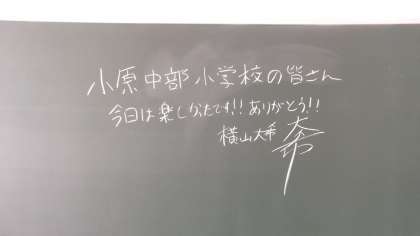 小原中部小学校の皆さん
今日は楽しかったです!! ありがとう!!
横山大希